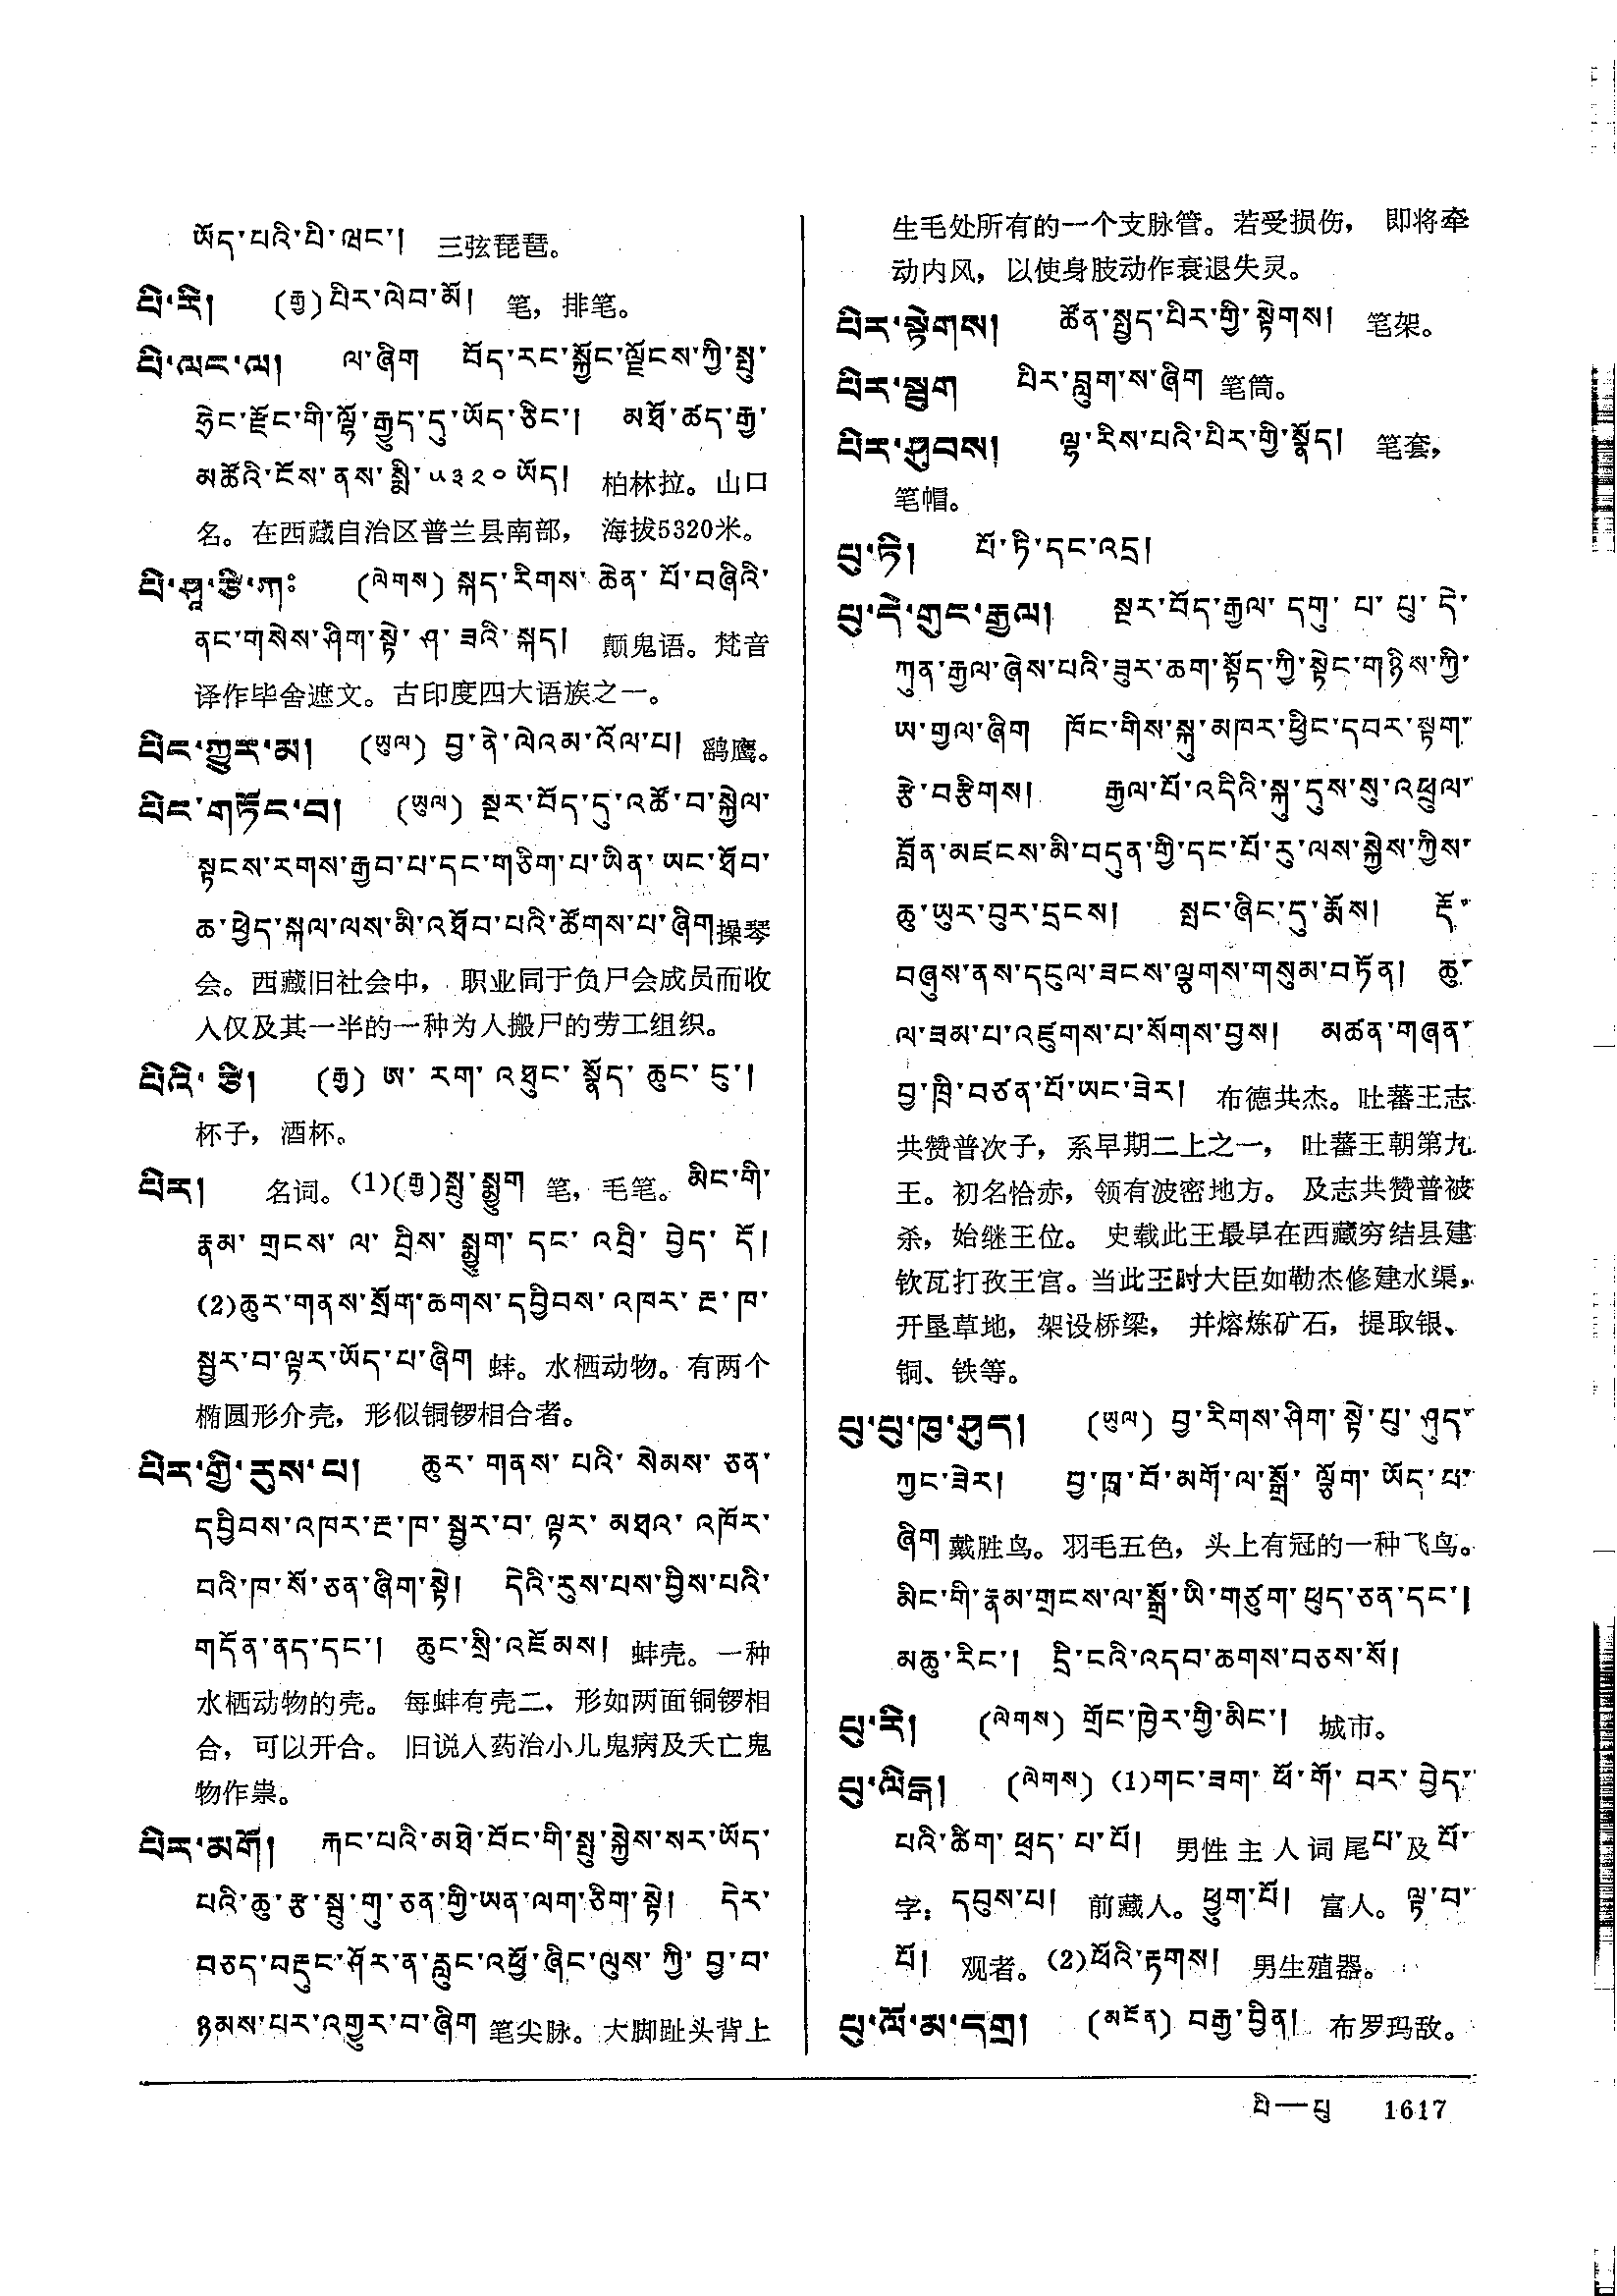 ཡོད་པའི་པི་ཝང་། 三弦琵琶。
པི་རི། (རྒྱ)པིར་ལེབ་མོ། 笔，排笔。
པི་ལང་ལ། ལ་ཞིག བོད་རང་སྐྱོང་ལྗོངས་ཀྱི་སྤུ་
ཧྲེང་རྫོང་གི་ལྷོ་རྒྱུད་དུ་ཡོད་ཅིང་། མཐོ་ཚད་རྒྱ་
མཚོའི་ངོས་ནས་སྨི་༥༣༢༠ཡོད། 柏林拉。山口
名。在西藏自治区普兰县南部，海拔5320米。
པི་ཤཱ་ཙི་ཀཿ (ལེགས) སྐད་རིགས་ཆེན་པོ་བཞིའི་
ནང་གསེས་ཤིག་སྟེ་ཤ་ཟའི་སྐད། 颠鬼语。梵音
译作毕舍遮文。古印度四大语族之一。
པིང་ཀྱུར་མ། (ཡུལ) བྱ་ནེ་ལེའམ་འོལ་པ། 鹞鹰。
པིང་གཏོང་བ། (ཡུལ) སྔར་བོད་དུ་འཚོ་བ་སྐྱེལ་
སྟངས་རགས་རྒྱབ་པ་དང་གཅིག་པ་ཡིན་ཡང་ཐོབ་
ཆ་ཕྱེད་སྐལ་ལས་མི་འཐོབ་པའི་ཚོགས་པ་ཞིག 操琴
会。西藏旧社会中，职业同于负尸会成员而收
入仅及其一半的一种为人搬尸的劳工组织。
པིའི་ཙི། (རྒྱ) ཨ་རག་འཐུང་སྣོད་ཆུང་ངུ་།
杯子，酒杯。
པིར། 名词。(1)(རྒྱ)སྤུ་སྨྱུག 笔，毛笔。མིང་གི་
རྣམ་གྲངས་ལ་བྲིས་སྨྱུག་དང་འབྲི་བྱེད་དོ།
(2)ཆུར་གནས་སྲོག་ཆགས་དབྱིབས་འཁར་རྔ་ཁ་
སྦྱར་བ་ལྟར་ཡོད་པ་ཞིག 蚌。水栖动物。有两个
椭圆形介壳，形似铜锣相合者。
པིར་གྱི་རུས་པ། ཆུར་གནས་པའི་སེམས་ཅན་
དབྱིབས་འཁར་རྔ་ཁ་སྦྱར་བ་ལྟར་མཐའ་འཁོར་
བའི་ཁ་སོ་ཅན་ཞིག་སྟེ། དེའི་རུས་པས་བྱིས་པའི་
གདོན་ནད་དང་། ཆུང་སྲི་འཇོམས། 蚌壳。一种
水栖动物的壳。每蚌有壳二，形如两面铜锣相
合，可以开合。旧说入药治小儿鬼病及夭亡鬼
物作祟。
པིར་མགོ། རྐང་པའི་མཐེ་བོང་གི་སྤུ་སྐྱེས་སར་ཡོད་
པའི་ཆུ་རྩ་སྦུ་གུ་ཅན་གྱི་ཡན་ལག་ཅིག་སྟེ། དེར་
བཅད་བརྡུང་ཤོར་ན་རླུང་འཕྱོ་ཞིང་ལུས་ཀྱི་བྱ་བ་
ཉམས་པར་འགྱུར་བ་ཞིག 笔尖脉。大脚趾头背上
生毛处所有的一个支脉管。若受损伤，即将牵
动内风，以使身肢动作衰退失灵。
པིར་སྟེགས། ཚོན་སྤྱད་པིར་གྱི་སྟེགས། 笔架。
པིར་སྦུག པིར་བླུག་ས་ཞིག 笔筒。
པིར་ཤུབས། ལྷ་རིས་པའི་པིར་གྱི་སྣོད། 笔套，
笔帽。
པུ་ཏི། པོ་ཏི་དང་འདྲ།
པུ་དེ་གུང་རྒྱལ། སྔར་བོད་རྒྱལ་དགུ་པ་པུ་དེ་
ཀུན་རྒྱལ་ཞེས་པའི་ཟུར་ཆག་སྟོད་ཀྱི་སྟེང་གཉིས་ཀྱི་
ཨ་གྱལ་ཞིག ཁོང་གིས་སྐུ་མཁར་ཕྱིང་དབར་སྟག་
རྩེ་བརྩིགས། རྒྱལ་པོ་འདིའི་སྐུ་དུས་སུ་འཕྲུལ་
བློན་མཛངས་མི་བདུན་གྱི་དང་པོ་རུ་ལས་སྐྱེས་ཀྱིས་
ཆུ་ཡུར་བུར་དྲངས། སྤང་ཞིང་དུ་རྨོས། རྡོ་
བཞུས་ནས་དངུལ་ཟངས་ལྕགས་གསུམ་བཏོན། ཆུ་
ལ་ཟམ་པ་འཛུགས་པ་སོགས་བྱས། མཚན་གཞན་
བྱ་ཁྲི་བཙན་པོ་ཡང་ཟེར། 布德共杰。吐蕃王志
共赞普次子，系早期二上之一，吐蕃王朝第九
王。初名恰赤，领有波密地方。及志共赞普被
杀，始继王位。史载此王最早在西藏穷结县建
钦瓦打孜王宫。当此王时大臣如勒杰修建水渠，
开垦草地，架设桥梁，并熔炼矿石，提取银、
铜、铁等。
པུ་པུ་ཁུ་ཤུད། (ཡུལ) བྱ་རིགས་ཤིག་སྟེ་པུ་ཤུད་
ཀྱང་ཟེར། བྱ་ཁྲ་བོ་མགོ་ལ་སྒྲོ་ལྕོག་ཡོད་པ་
ཞིག 戴胜鸟。羽毛五色，头上有冠的一种飞鸟。
མིང་གི་རྣམ་གྲངས་ལ་སྒྲོ་ཡི་གཙུག་ཕུད་ཅན་དང་།
མཆུ་རིང་། དྲི་ངའི་འདབ་ཆགས་བཅས་སོ།
པུ་རི། (ལེགས) གྲོང་ཁྱེར་གྱི་མིང་། 城市。
པུ་ལིངྒ། (ལེགས) (1)གང་ཟག་ཕོ་གོ་བར་བྱེད་
པའི་ཚིག་ཕྲད་པ་པོ། 男性主人词尾པ་及པོ་
字：དབུས་པ། 前藏人。ཕྱུག་པོ། 富人。ལྟ་བ་
པོ། 观者。(2)ཕོའི་རྟགས། 男生殖器。
པུ་ལོ་མ་དགྲ། (མངོན) བརྒྱ་བྱིན། 布罗玛敌。
པི—པུ 1617